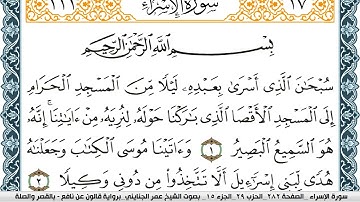 ١١١ سورة الإسراء ١٧
بِسْمِ اللَّهِ الرَّحْمَٰنِ الرَّحِيمِ
سُبْحَٰنَ الَّذِي أَسْرَىٰ بِعَبْدِهِۦ لَيْلًا مِّنَ الْمَسْجِدِ الْحَرَامِ
إِلَى الْمَسْجِدِ الْأَقْصَا الَّذِي بَٰرَكْنَا حَوْلَهُۥ لِنُرِيَهُۥ مِنْ ءَايَٰتِنَا إِنَّهُۥ
هُوَ السَّمِيعُ الْبَصِيرُ ١ وَءَاتَيْنَا مُوسَى الْكِتَٰبَ وَجَعَلْنَٰهُ
هُدًى لِّبَنِي إِسْرَٰٓءِيلَ أَلَّا تَتَّخِذُوا مِن دُونِي وَكِيلًا ٢
سورة الإسراء . الصفحة ٢٨٢ الحزب ٢٩ الجزء ١٥ بصوت الشيخ عمر الجنايني . برواية قالون عن نافع - بالقصر والصلة